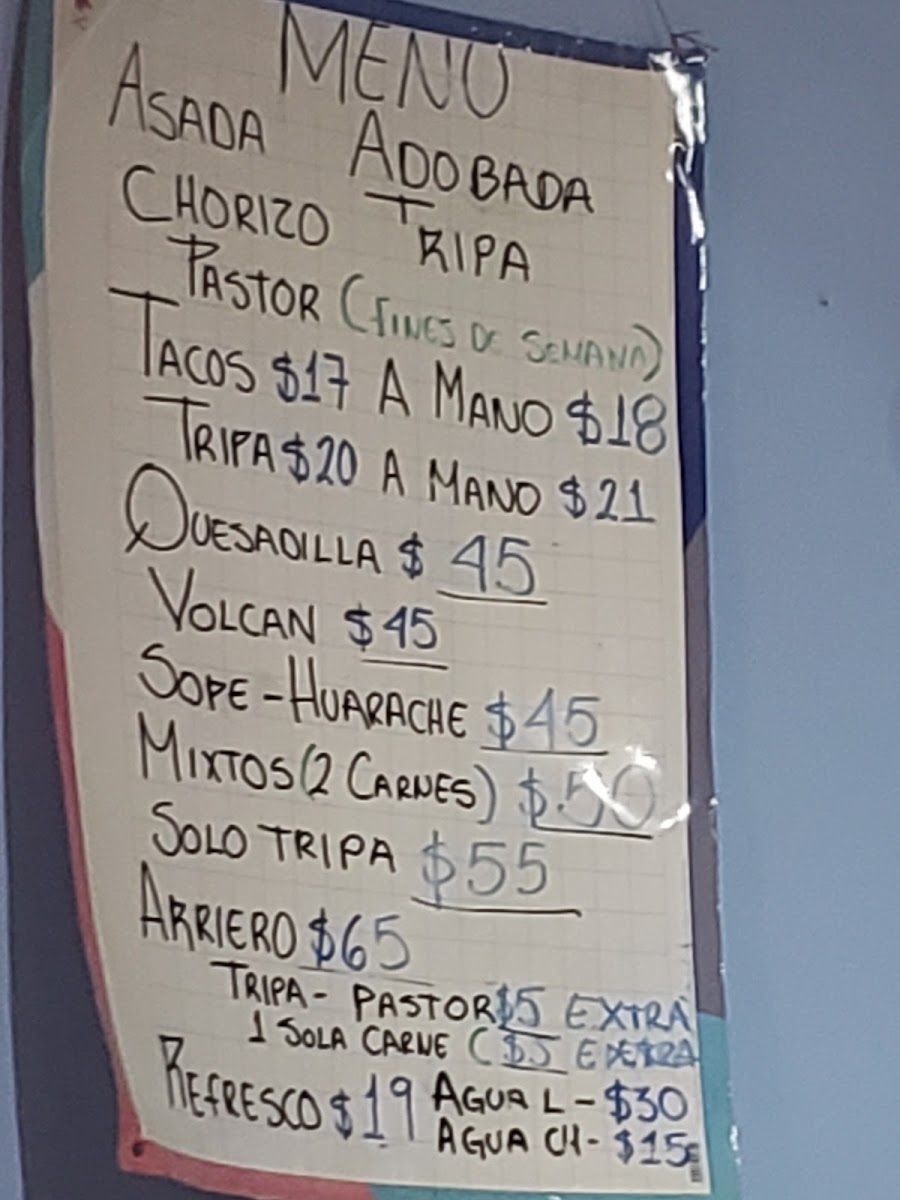 MENU
ASADA ADOBADA
CHORIZO TRIPA
PASTOR (FINES DE SEMANA)
TACOS $17 A MANO $18
TRIPA $20 A MANO $21
QUESADILLA $ 45
VOLCAN $45
SOPE-HUARACHE $45
MIXTOS (2 CARNES) $50
SOLO TRIPA $55
ARRIERO $65
TRIPA - PASTOR $5 EXTRA
1 SOLA CARNE ($5 EXTRA
REFRESCO $19 AGUA L - $30
AGUA CH - $15